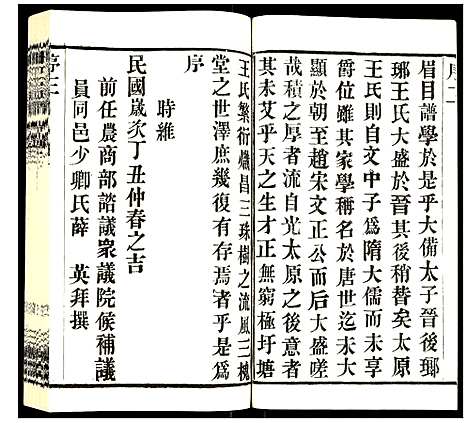 序二
眉目譜學於是乎大備太子晉後瑯
瑯王氏大盛於晉其後稍替矣太原
王氏則自文中子爲隋大儒而未享
爵位雖其家學稱名於唐世迄未大
顯於朝至趙宋文正公而后大盛嗟
哉積之厚者流自光太原之後意者
其未艾乎天之生才正無窮極圩塘
王氏繁衍熾昌三珠樹之流風三槐
堂之世澤庶幾復有存焉者乎是爲
序
時維
民國歲次丁丑仲春之吉
前任農商部諮議衆議院候補議
員同邑少卿氏薛 英拜撰
序三